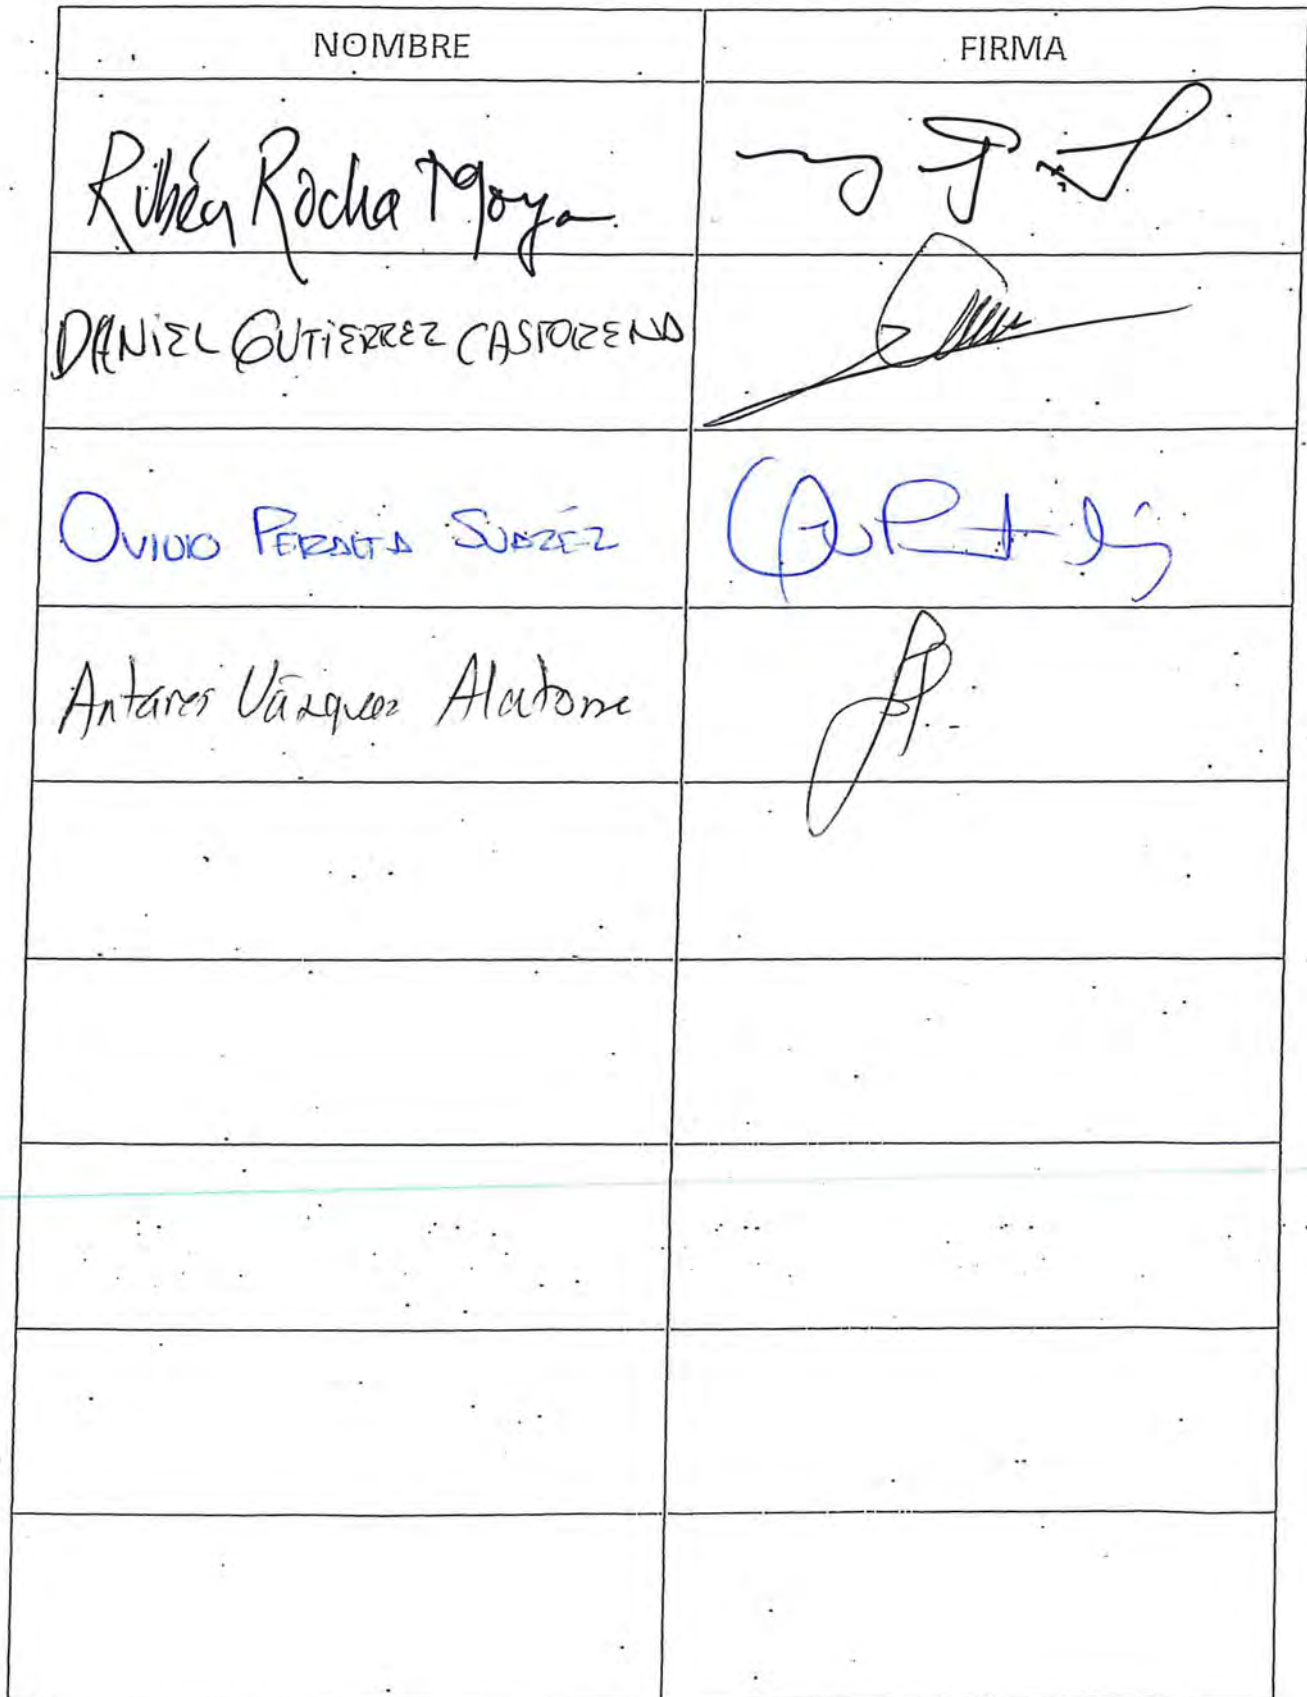 NOMBRE FIRMA
Rubén Rocha Moya
DANIEL GUTIERREZ CASTORENA
OVIDIO PERALTA SUAREZ
Antares Vázquez Alatorre